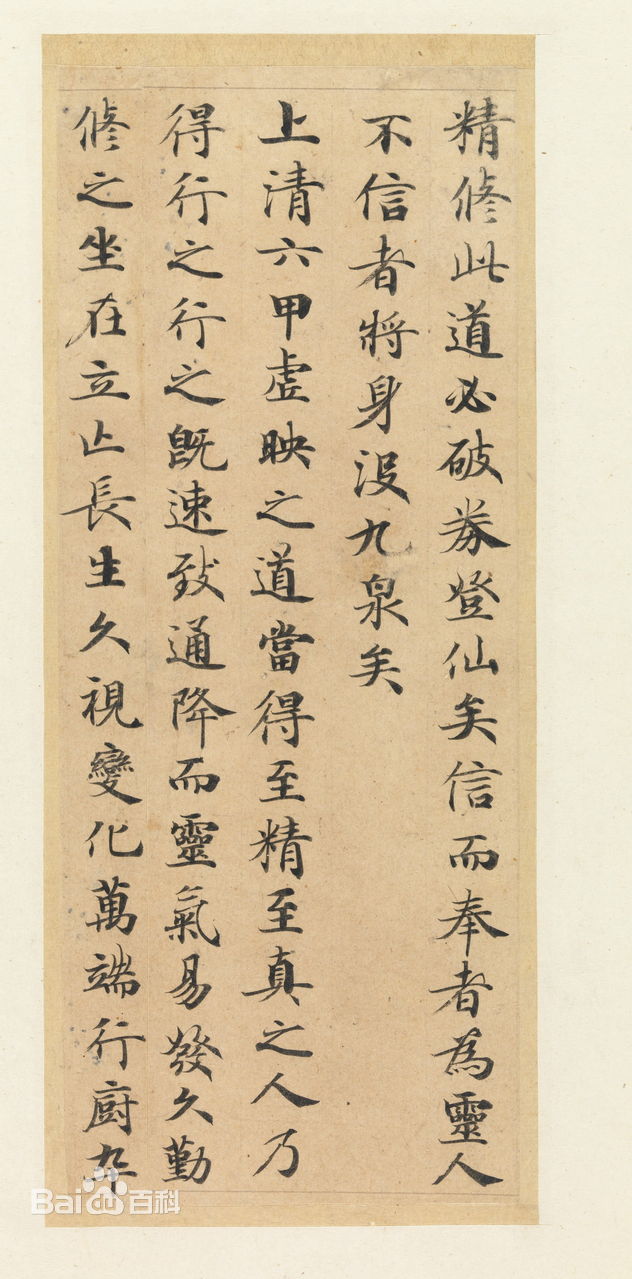 精修此道必破券登仙矣信而奉者為靈人
不信者將身没九泉矣
上清六甲虛映之道當得至精至真之人乃
得行之行之既速致通降而靈氣易發久勤
修之坐在立亡長生久視變化萬端行廚卒
Bai百科